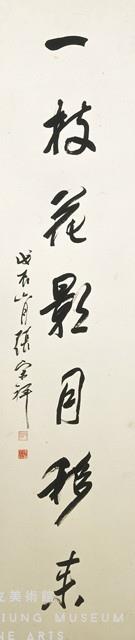 一枝花影月移来
戊辰六月張宗祥
立美術館
IUNG MUSEUM
NE ARTS